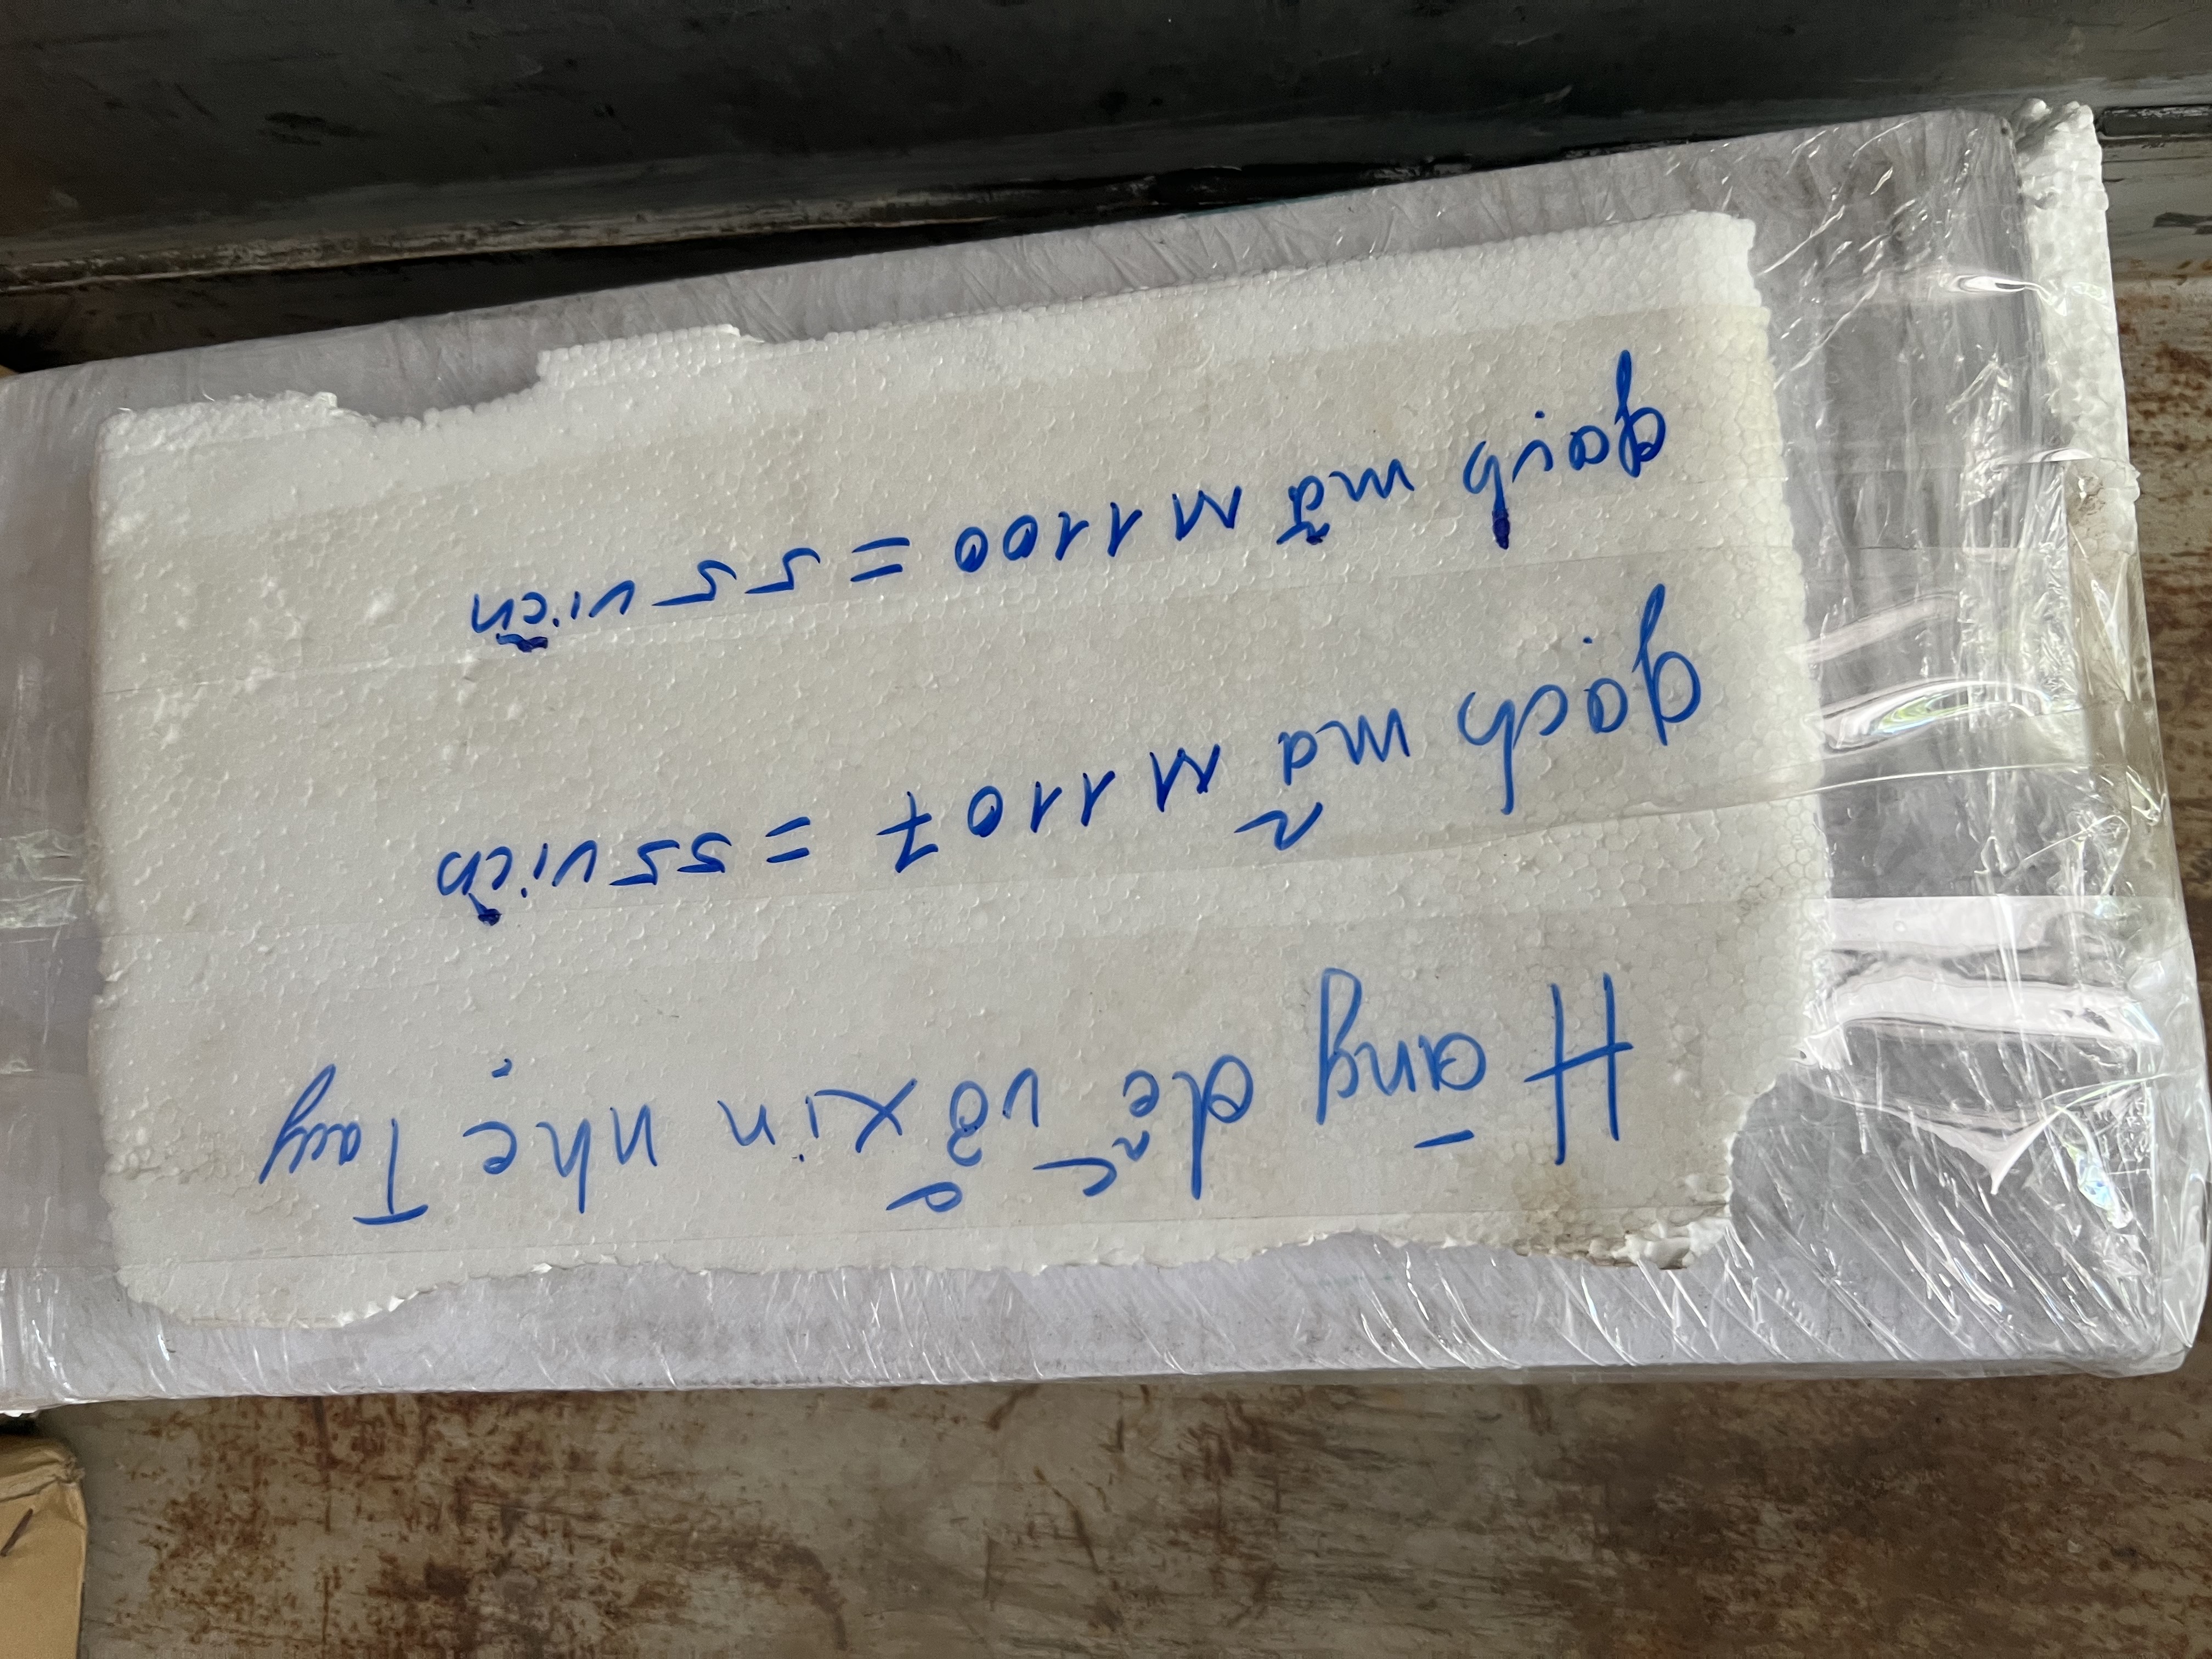 Hàng dễ vỡ xin nhẹ Tay
gạch mã M1107 = 55 viên
gạch mã M1100 = 55 viên